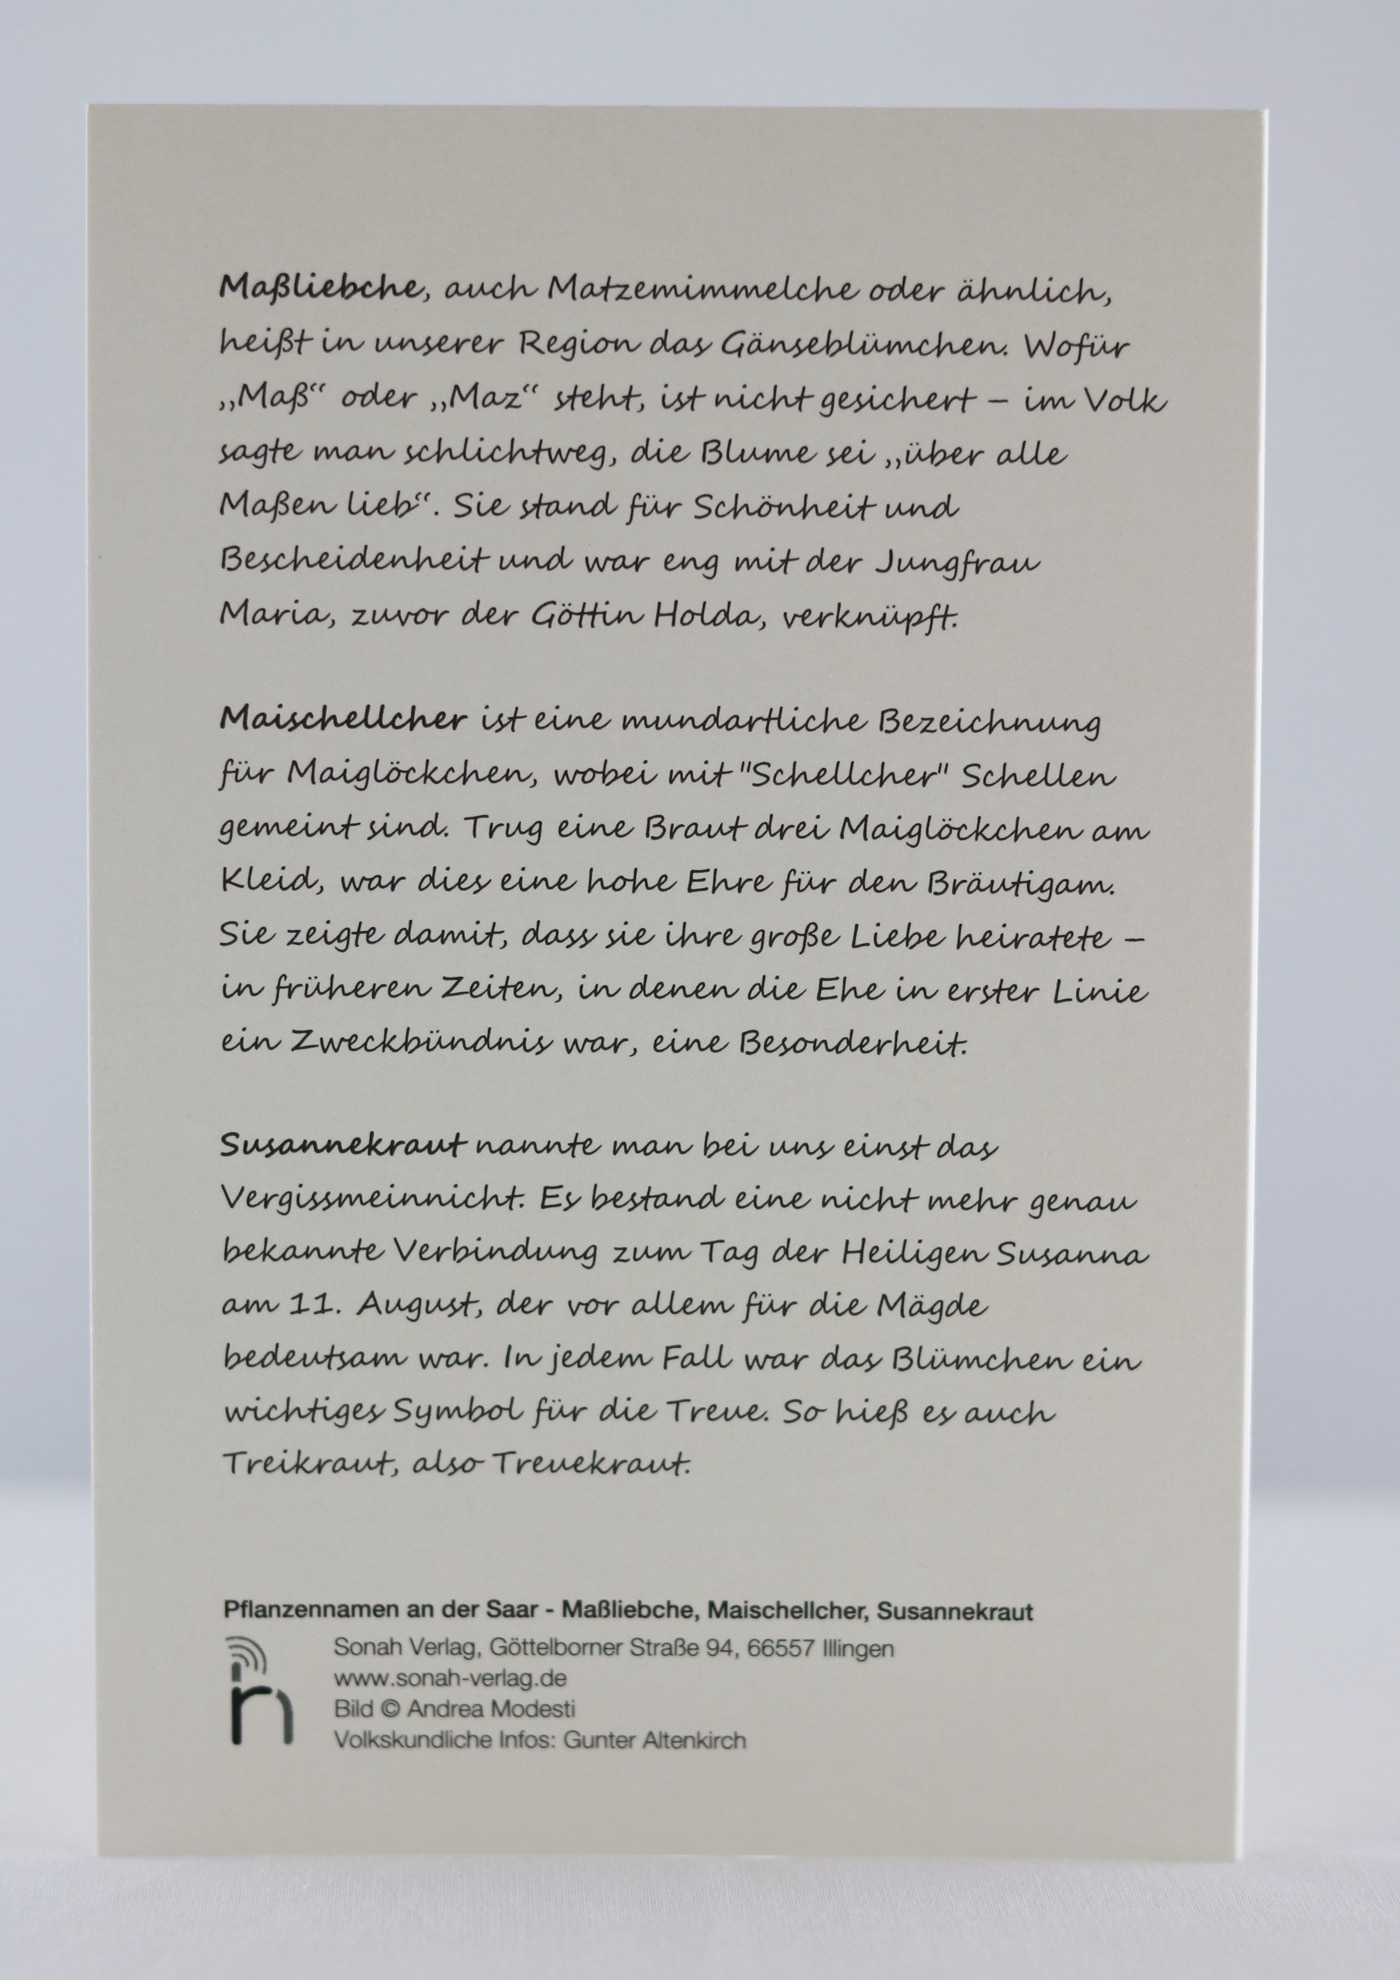 Maßliebche, auch Matzemimmelche oder ähnlich,
heißt in unserer Region das Gänseblümchen. Wofür
„Maß“ oder „Maz“ steht, ist nicht gesichert – im Volk
sagte man schlichtweg, die Blume sei „über alle
Maßen lieb“. Sie stand für Schönheit und
Bescheidenheit und war eng mit der Jungfrau
Maria, zuvor der Göttin Holda, verknüpft.
Maischellcher ist eine mundartliche Bezeichnung
für Maiglöckchen, wobei mit "Schellcher" Schellen
gemeint sind. Trug eine Braut drei Maiglöckchen am
Kleid, war dies eine hohe Ehre für den Bräutigam.
Sie zeigte damit, dass sie ihre große Liebe heiratete –
in früheren Zeiten, in denen die Ehe in erster Linie
ein Zweckbündnis war, eine Besonderheit.
Susannekraut nannte man bei uns einst das
Vergissmeinnicht. Es bestand eine nicht mehr genau
bekannte Verbindung zum Tag der Heiligen Susanna
am 11. August, der vor allem für die Mägde
bedeutsam war. In jedem Fall war das Blümchen ein
wichtiges Symbol für die Treue. So hieß es auch
Treikraut, also Treuekraut.
Pflanzennamen an der Saar - Maßliebche, Maischellcher, Susannekraut
Sonah Verlag, Göttelborner Straße 94, 66557 Illingen
www.sonah-verlag.de
Bild © Andrea Modesti
Volkskundliche Infos: Gunter Altenkirch